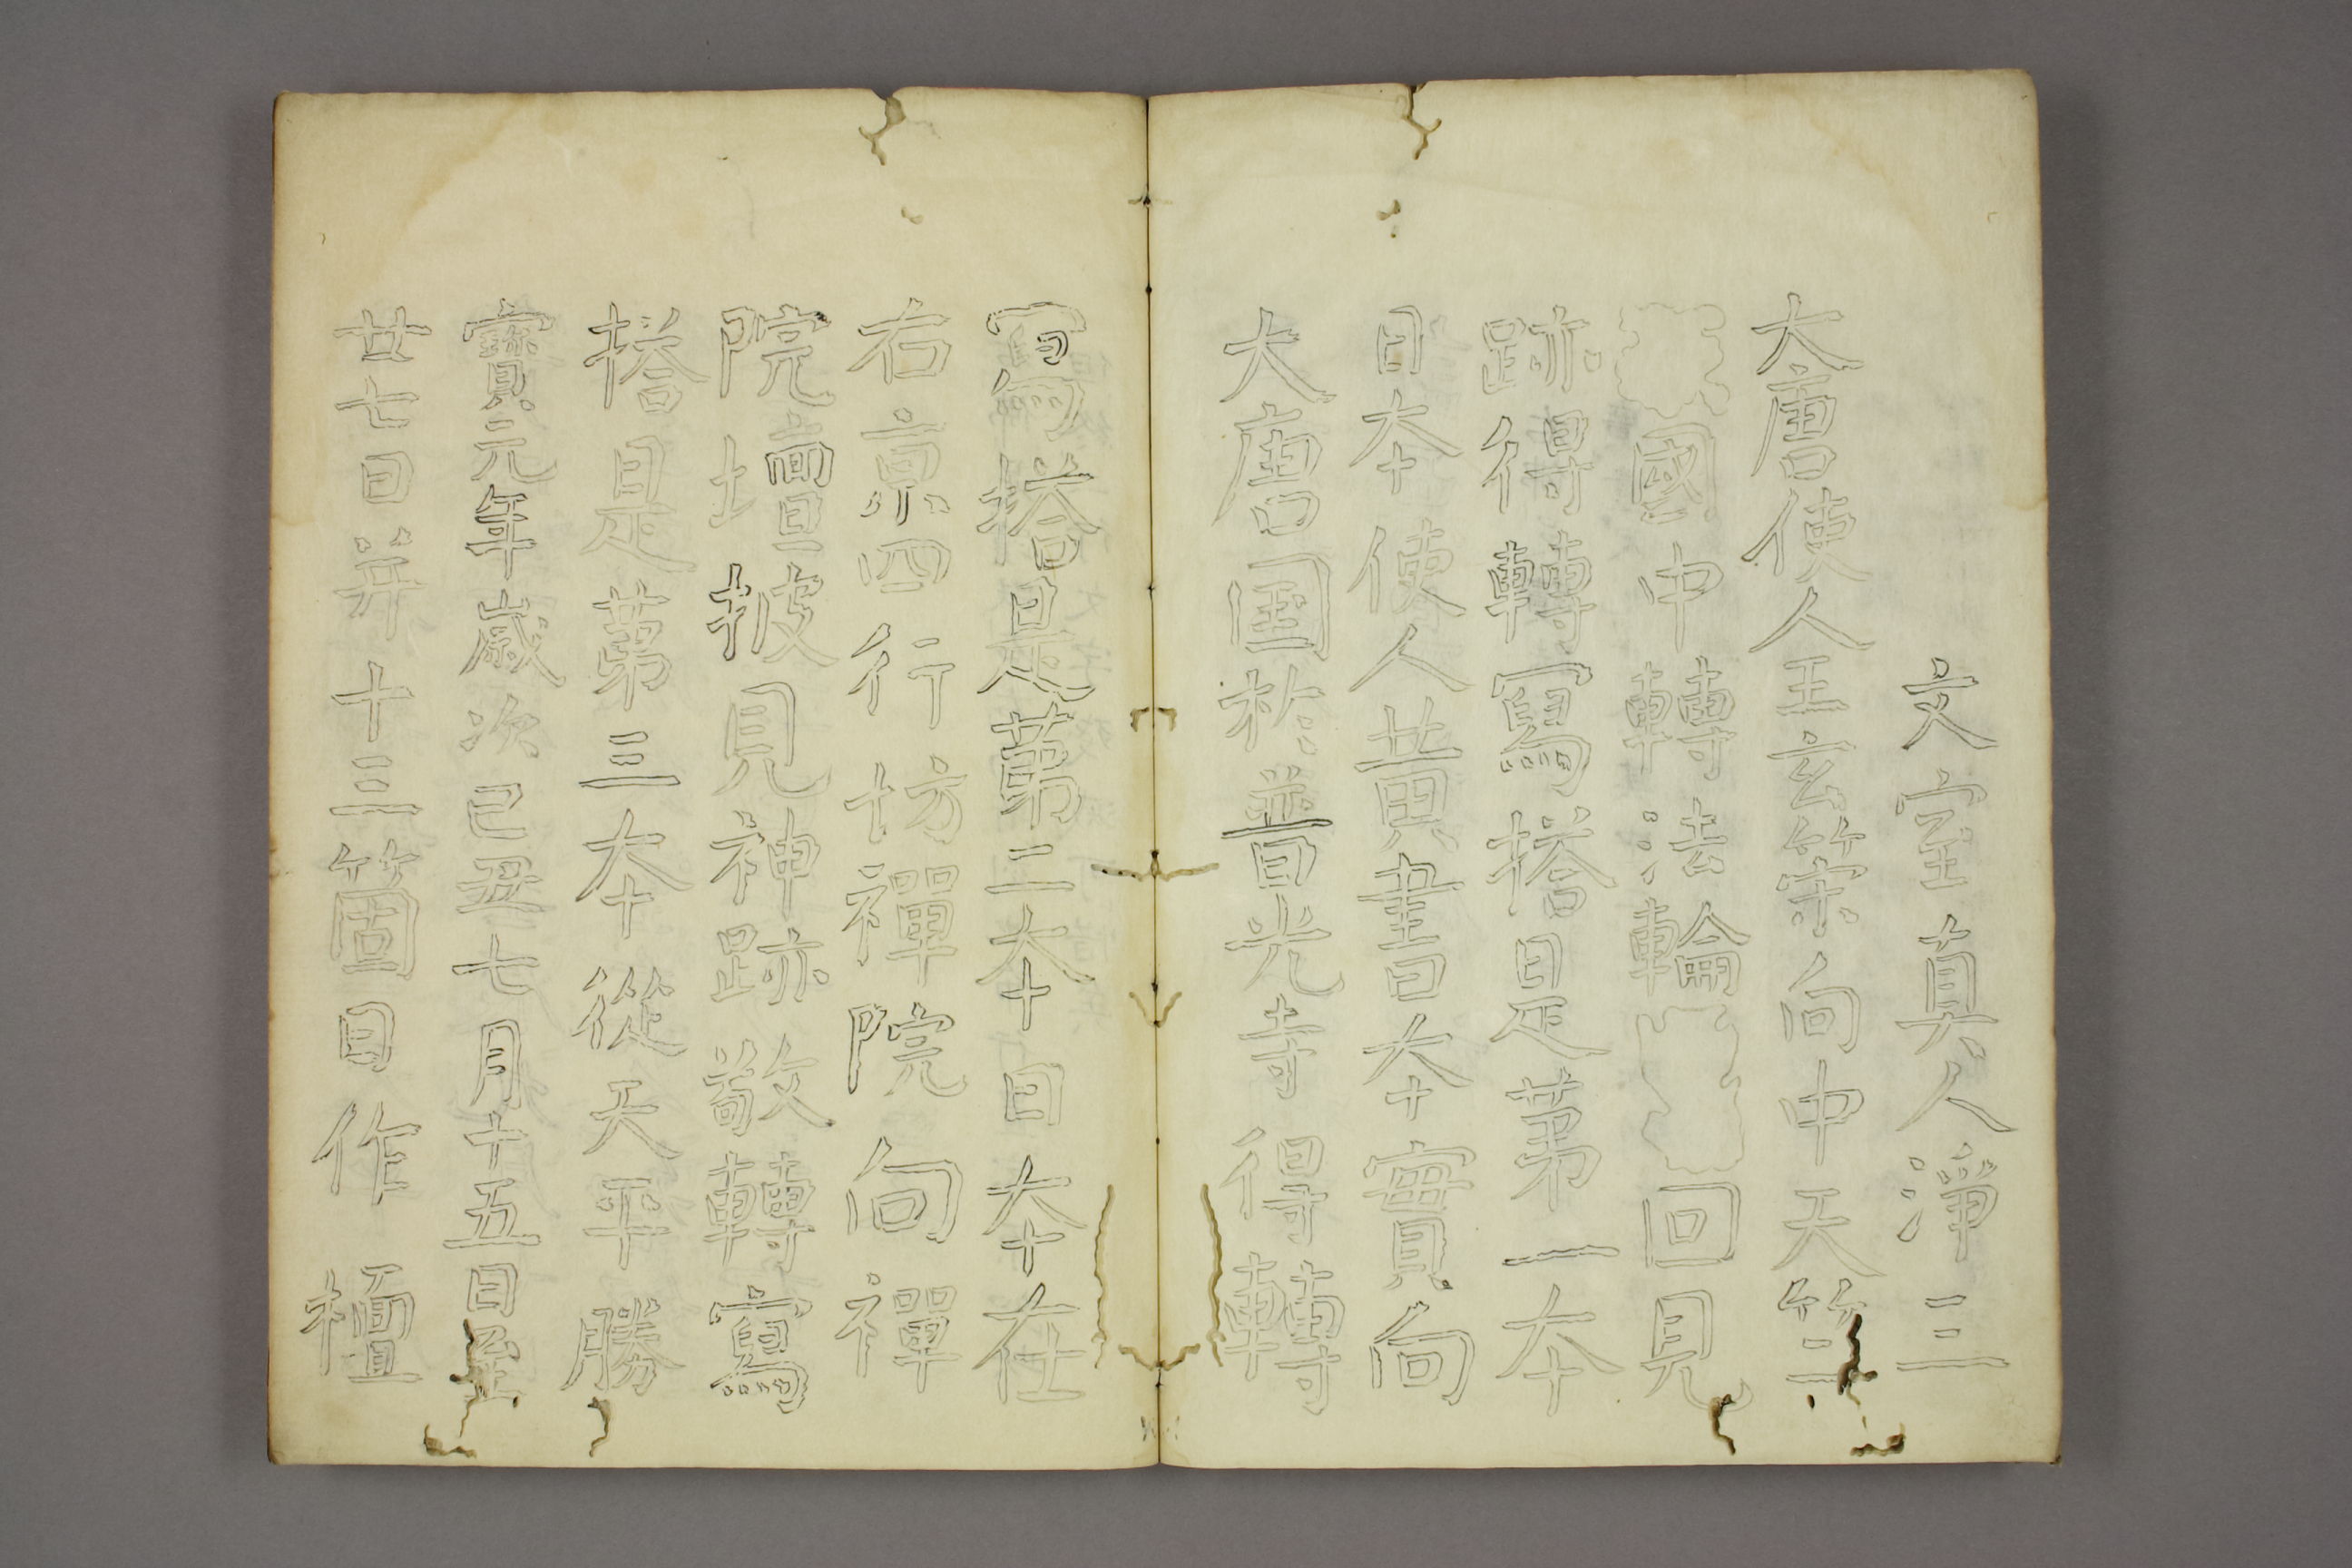 文室真人淨三
大唐使人王玄筞向中天竺
國中轉法輪回見
跡得轉寫搭是苐一本
日本使人黃書本實向
大唐国於普光寺得轉
寫搭是苐二本日本在
右京四行坊禪院向禪
院壇披見神跡敬轉寫
搭是苐三本從天平勝
寶元年歲次己丑七月十五日至
廿七日并十三箇日作檀